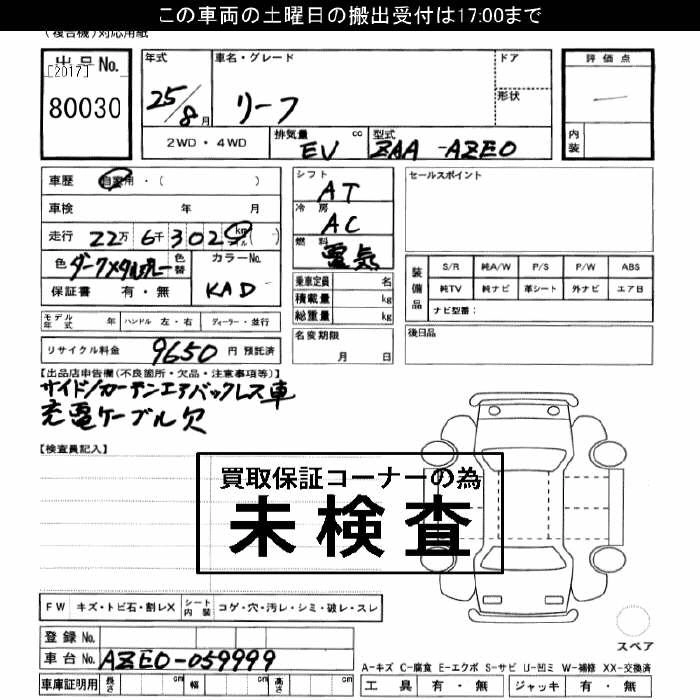 この車両の土曜日の搬出受付は17:00まで
(複合機)対応用紙
出品No.
[2017]
80030
年式
25/8月
車名・グレード
リーフ
ドア
形状
評価点
内装
2WD・4WD
排気量 cc
EV
型式
ZAA-AZE0
車歴 自家用・( )
車検 年 月
走行 22万 6千 302 km ( )
色 ダークメタルグレー 色替
カラーNo.
KAD
保証書 有・無
シフト
AT
冷房
AC
燃料
電気
乗車定員 名
積載量 kg
総重量 kg
セールスポイント
装備品
S/R 純A/W P/S P/W ABS
純TV 純ナビ 革シート 外ナビ エアB
ナビ型番:
モデル年式 年 ハンドル 左・右 ディーラー・並行
名変期限
月 日
後日品
リサイクル料金 9650 円 預託済
【出品店申告欄(不良箇所・欠品・注意事項等)】
サイド/カーテンエアバックレス車
充電ケーブル欠
【検査員記入】
買取保証コーナーの為
未検査
FW キズ・トビ石・割レX シート内装 コゲ・穴・汚レ・シミ・破レ・スレ
登録No.
車台No. AZE0-059999
車庫証明用 長さ cm 幅 cm 高さ cm
スペア
A-キズ C-腐食 E-エクボ S-サビ U-凹ミ W-補修 XX-交換済
工具 有・無 ジャッキ 有・無